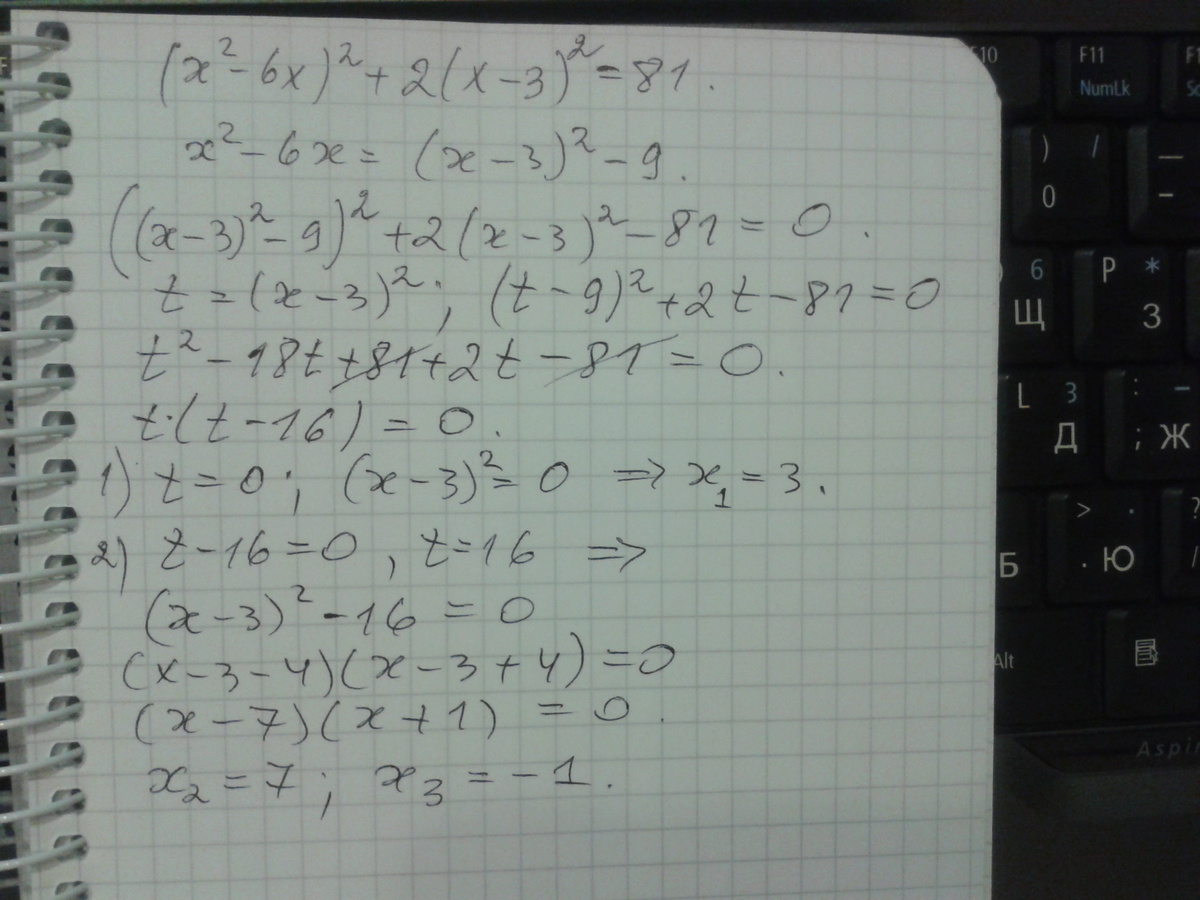 (x²-6x)²+2(x-3)²=81.
x²-6x=(x-3)²-9.
((x-3)²-9)²+2(x-3)²-81=0.
t=(x-3)²; (t-9)²+2t-81=0
t²-18t+81+2t-81=0.
t·(t-16)=0.
1) t=0; (x-3)²=0 ⇒ x₁=3.
2) t-16=0, t=16 ⇒
(x-3)²-16=0
(x-3-4)(x-3+4)=0
(x-7)(x+1)=0.
x₂=7; x₃=-1.
F11
NumLk
) /
0
—
-
6
Щ
P *
З
L 3
Д
: -
; Ж
Б
> .
. Ю
?
/
Alt
Aspi